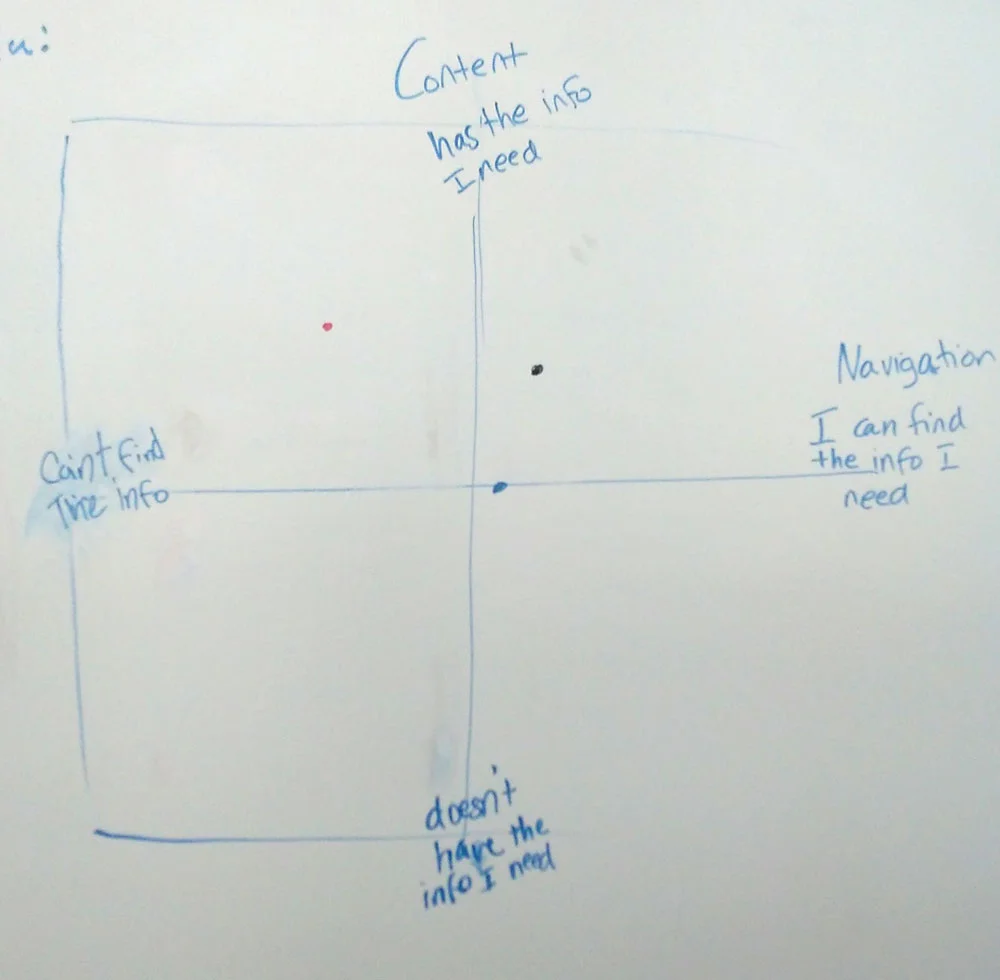 Content
has the info
I need
Navigation
I can find
the info I
need
Can't find
The info
doesn't
have the
info I need